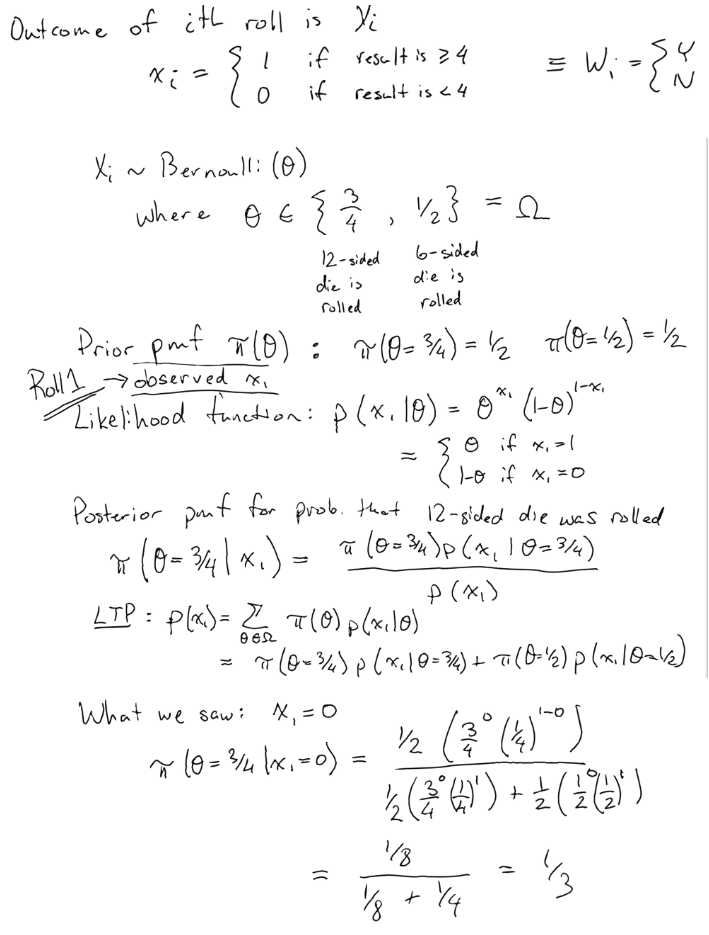 Outcome of ith roll is Xi
xi = { 1 if result is ≥ 4 ≡ Wi = { Y
0 if result is < 4 N
Xi ~ Bernoulli (θ)
where θ ∈ { 3/4 , 1/2 } = Ω
12-sided die is rolled
6-sided die is rolled
Prior pmf π(θ) : π(θ = 3/4) = 1/2 π(θ = 1/2) = 1/2
Roll 1 → observed x₁
Likelihood function: p(x₁|θ) = θ^x₁ (1-θ)^1-x₁
= { θ if x₁ = 1
1-θ if x₁ = 0
Posterior pmf for prob. that 12-sided die was rolled
π(θ = 3/4 | x₁) = π(θ = 3/4) p(x₁ | θ = 3/4) / p(x₁)
LTP : p(x₁) = Σ θ∈Ω π(θ) p(x₁|θ)
= π(θ = 3/4) p(x₁|θ = 3/4) + π(θ = 1/2) p(x₁|θ = 1/2)
What we saw: x₁ = 0
π(θ = 3/4 | x₁ = 0) = 1/2 (3/4^0 (1/4)^1-0) / 1/2 (3/4^0 (1/4)^1) + 1/2 (1/2^0 (1/2)^1)
= 1/8 / 1/8 + 1/4 = 1/3